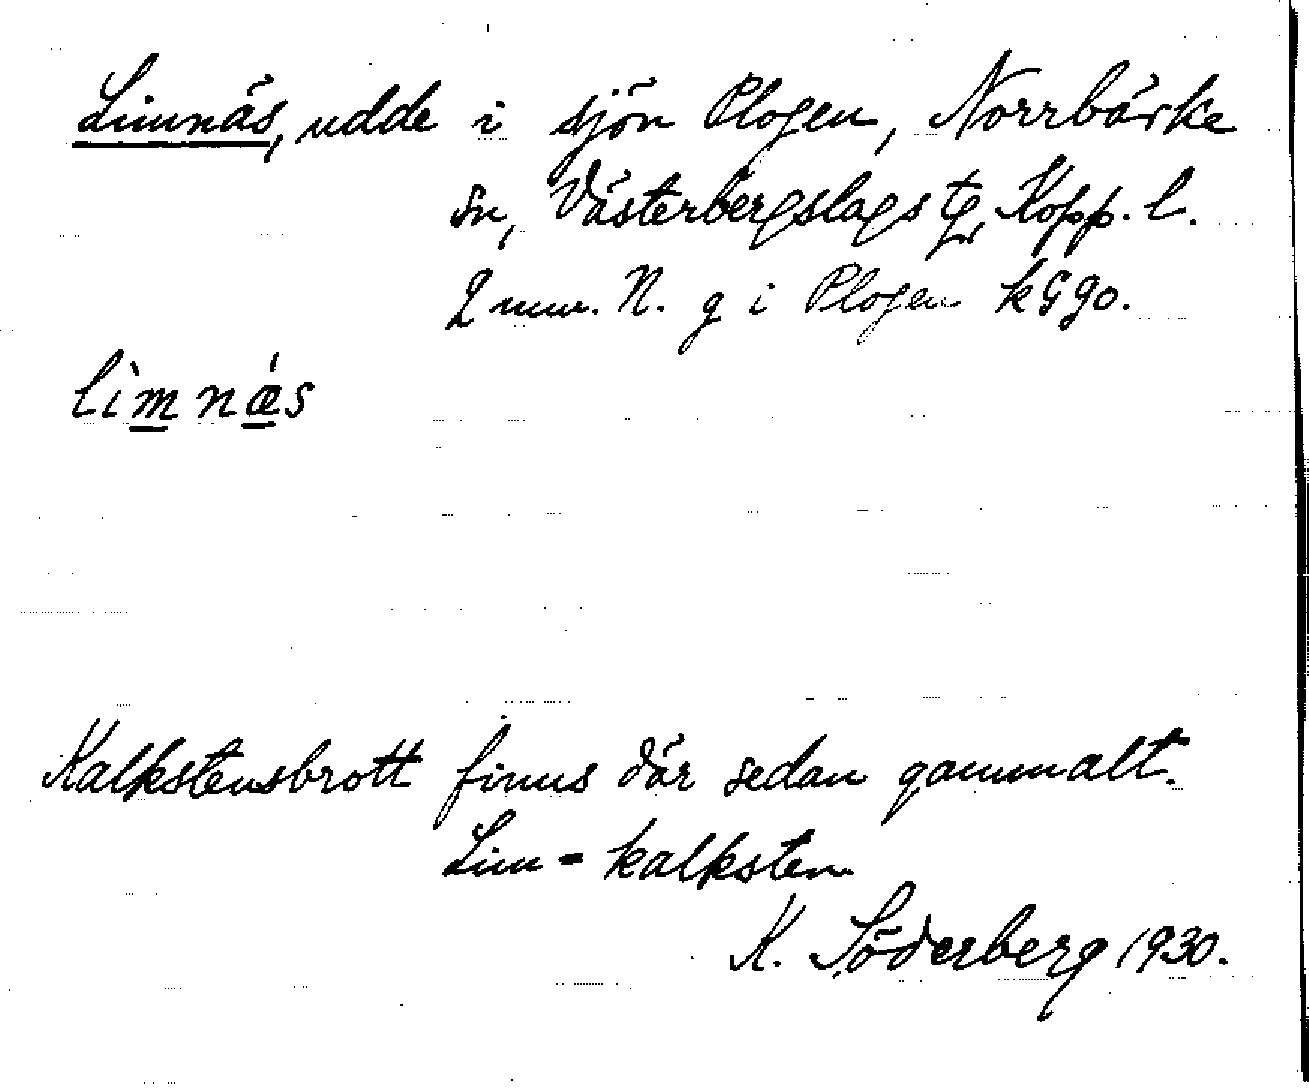 Limnäs, udde i sjön Plogen, Norrbärke
sn, Västerbergslags tg, Kopp. l.
2 mm. N. g i Plogen k G90.
lìmnǽs
Kalkstensbrott finns där sedan gammalt.
Lim = kalksten
K. Söderberg 1930.